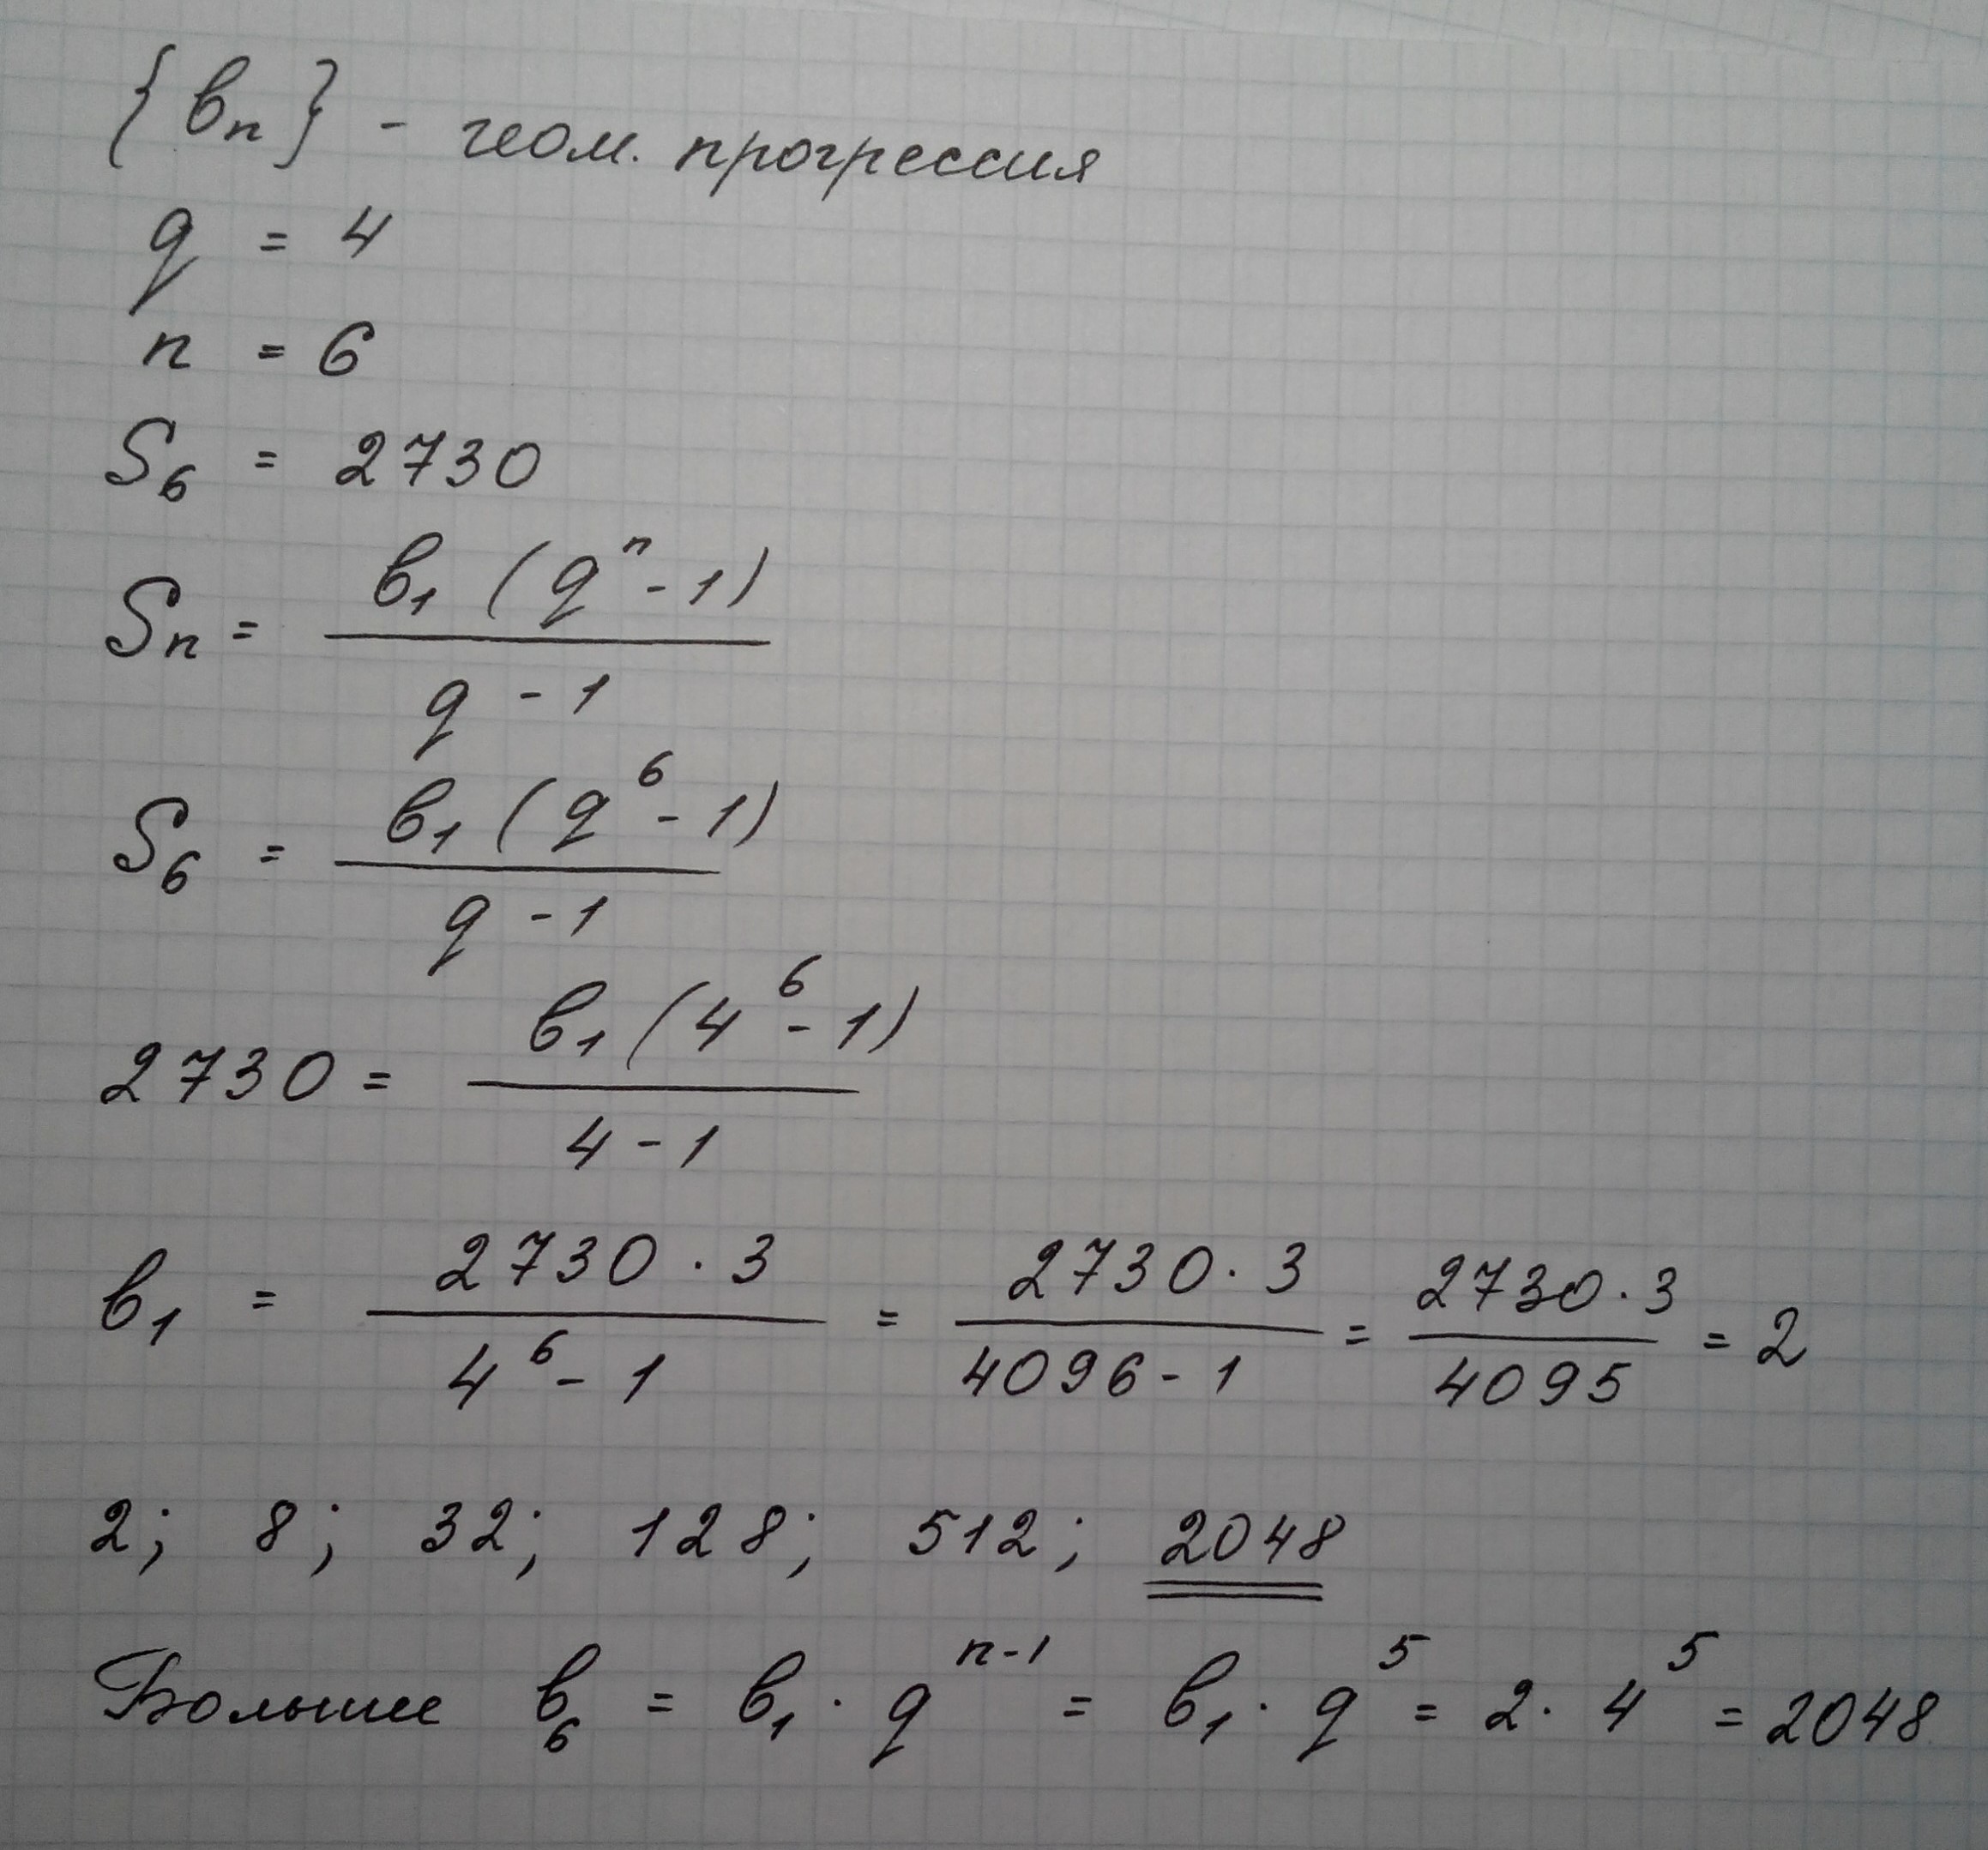 {bₙ} - геом. прогрессия
q = 4
n = 6
S₆ = 2730
Sₙ = b₁(qⁿ - 1) / (q - 1)
S₆ = b₁(q⁶ - 1) / (q - 1)
2730 = b₁(4⁶ - 1) / (4 - 1)
b₁ = (2730 · 3) / (4⁶ - 1) = (2730 · 3) / (4096 - 1) = (2730 · 3) / 4095 = 2
2; 8; 32; 128; 512; 2048
Большее b₆ = b₁ · qⁿ⁻¹ = b₁ · q⁵ = 2 · 4⁵ = 2048